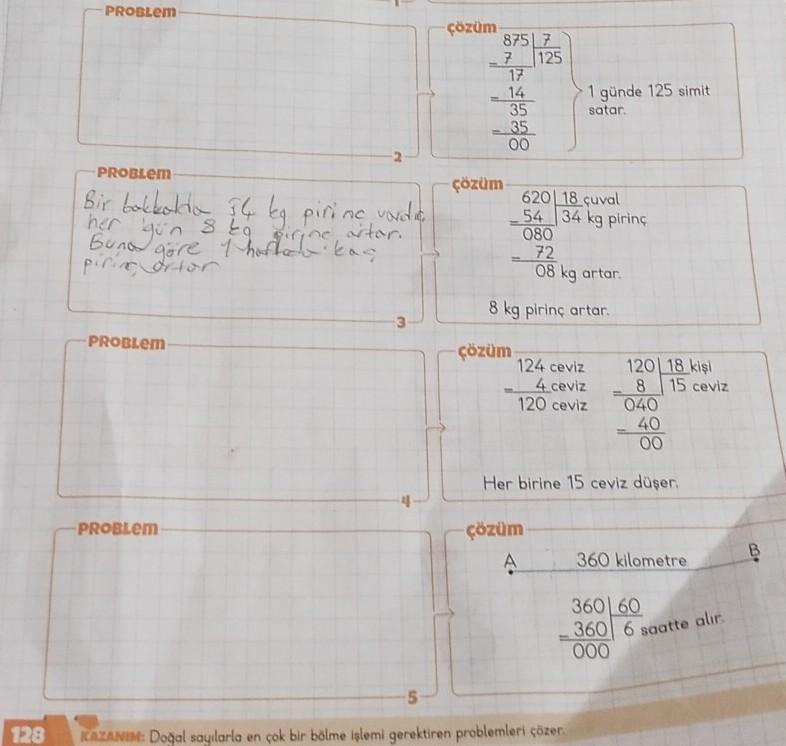 PROBLEM
ÇÖZÜM
875 7
- 7 125
17
- 14
35
- 35
00
1 günde 125 simit
satar.
2
PROBLEM
Bir bakkalda 34 kg pirinç vardır
her gün 8 kg pirinç artar.
Buna göre 1 haftada kaç
pirinç artar
ÇÖZÜM
620 18 çuval
- 54 34 kg pirinç
080
- 72
08 kg artar.
8 kg pirinç artar.
3
PROBLEM
ÇÖZÜM
124 ceviz
- 4 ceviz
120 ceviz
120 18 kişi
- 8 15 ceviz
040
- 40
00
Her birine 15 ceviz düşer.
4
PROBLEM
ÇÖZÜM
A 360 kilometre B
360 60
- 360 6 saatte alır.
000
5
128 KAZANIM: Doğal sayılarla en çok bir bölme işlemi gerektiren problemleri çözer.